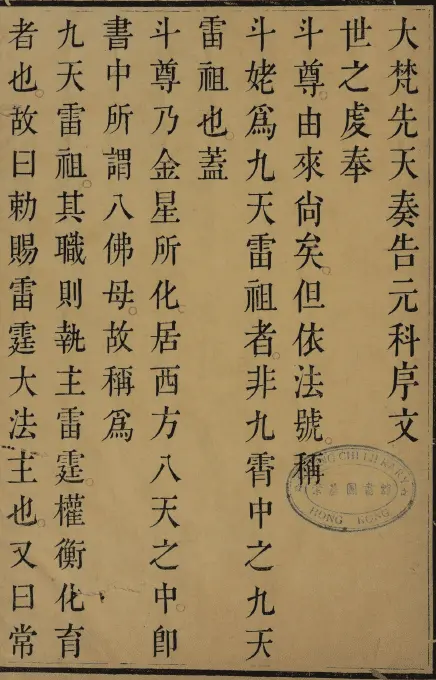 大梵先天奏告元科序文
世之虔奉
斗尊由來尙矣但依法號稱
斗姥爲九天雷祖者非九霄中之九天
雷祖也蓋
斗尊乃金星所化居西方八天之中卽
書中所謂八佛母故稱爲
九天雷祖其職則執主雷霆權衡化育
者也故曰勅賜雷霆大法主也又曰常
HONG KONG